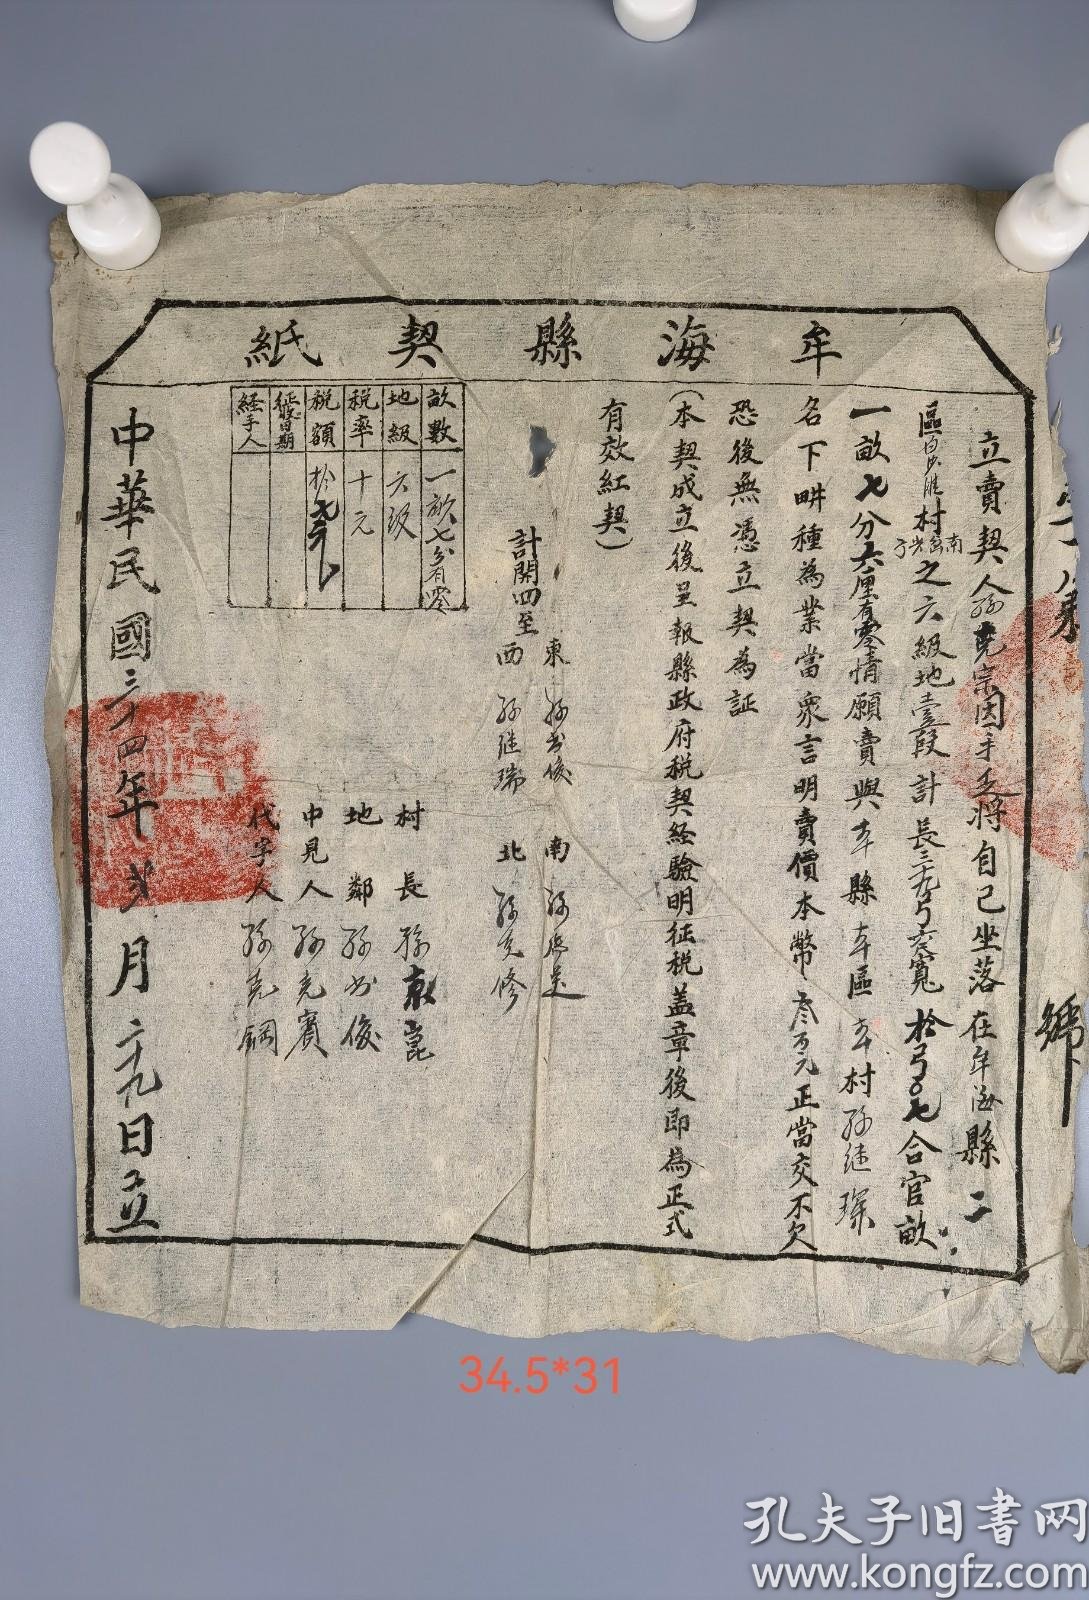 牟海縣契紙
立賣契人孫堯宗因手乏將自己坐落在牟海縣二
區白沙灘村之六級地壹段計長三十九弓六寬拾弓〇七合官畝
一畝七分六厘有零情願賣與本縣本區本村孫継琛
名下畊種為業當衆言明賣價本幣叁万元正當交不欠
恐後無憑立契為証
(本契成立後呈報縣政府税契経驗明征税盖章後即為正式
有效紅契)
計開四至
東孫書俊 南孫
西孫継瑞 北孫克修
畝數 一畝七分有零
地級 六級
税率 十元
税額 拾七元
征收日期
経手人
村長孫
地鄰孫書俊
中見人孫克賓
代字人孫克鋼
中華民國三十四年弍月二十九日立
號
34.5*31
孔夫子旧書网
www.kongfz.com